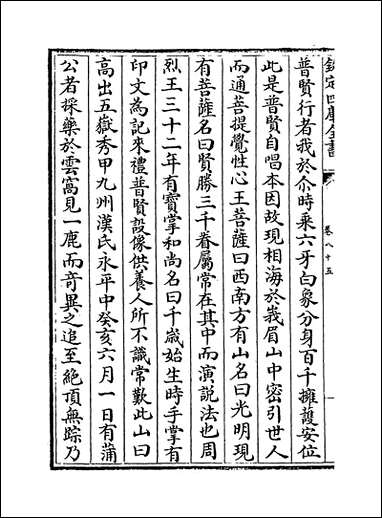 欽定四庫全書
卷八十五
普賢行者我於尒時乗六牙白象分身百千擁護安位
此是普賢自唱本因故現相海於峩眉山中密引世人
而通菩提覺性心王菩薩曰西南方有山名曰光明現
有菩薩名曰賢勝三千眷屬常在其中而演説法也周
烈王三十二年有寳掌和尚名曰千歳始生時手掌有
印文為記來禮普賢設像供養人所不識常歎此山曰
高出五嶽秀甲九州漢氏永平中癸亥六月一日有蒲
公者採藥於雲窩見一鹿而竒異之追至絶頂無踪乃